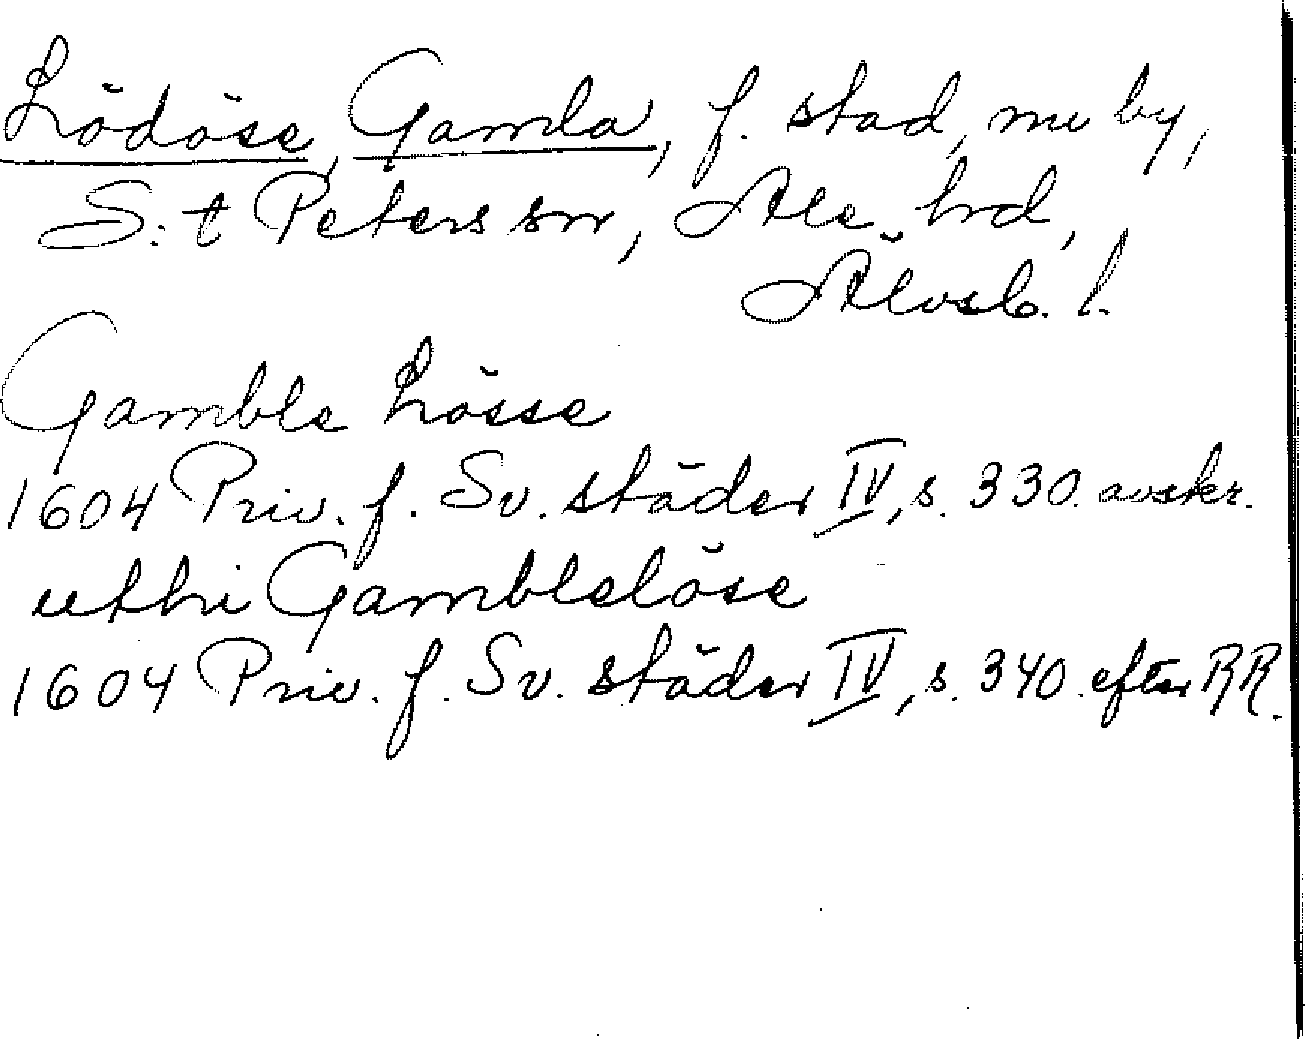 Lödöse, Gamla, f. stad, nu by,
S:t Peters sn, Ale hd,
Älvsb. l.
Gamble Lösse
1604 Priv. f. Sv. städer IV, s. 330. avskr.
uthi Gamblelöse
1604 Priv. f. Sv. städer IV, s. 340. efter RR.